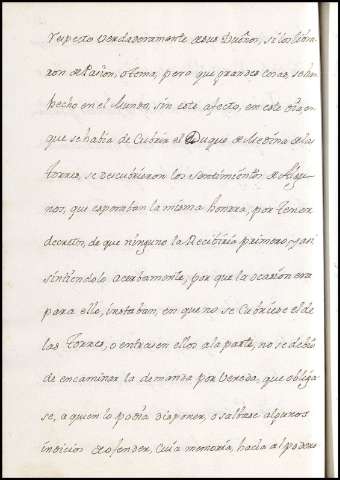 respecto verdaderamente de sus Dueños, si los libra
ron de Pasion, o tema, pero que grandes cosas, se han
hecho en el Mundo, sin este afecto, en este dia, en
que se había de Cubrir el Duque de Medina de las
Torres, se descubrieron los sentimientos de Algu-
nos, que esperaban la misma honrra, por tener
decretos, de que ninguno la Recibiria primero, y asi
sintiendolo acerbamente, por que la ocasion era
para ello, instaban, em que no se Cubriese el de
las Torres, o entrasen ellos a la parte, no se debio
de encaminar la demanda por Vereda, que obliga
se, a quien lo podia disponer, o saltase algunos
indicios de ofender, Cuia memoria, hacia al podero